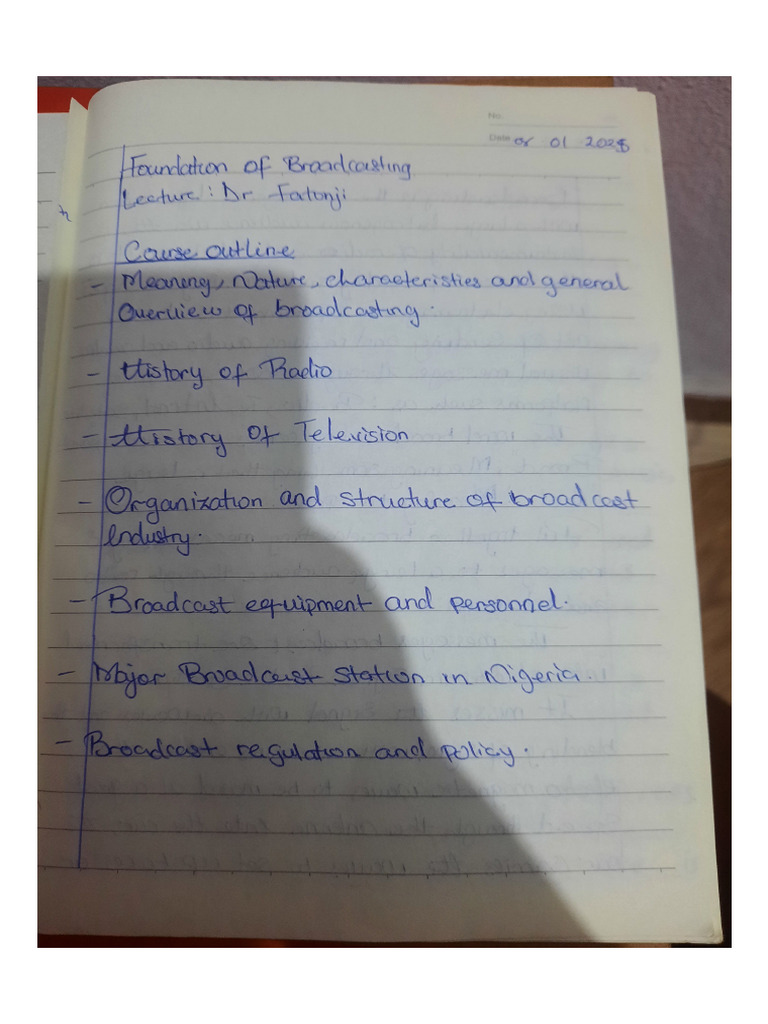 No.
Date 01 2025
Foundation of Broadcasting
Lecture: Dr Fatonji
Course outline
- Meaning, Nature, characteristics and general
Overview of broadcasting.
- History of Radio
- History of Television
- Organization and structure of broadcast
Industry.
- Broadcast equipment and personnel.
- Major Broadcast station in Nigeria.
- Broadcast regulation and policy.